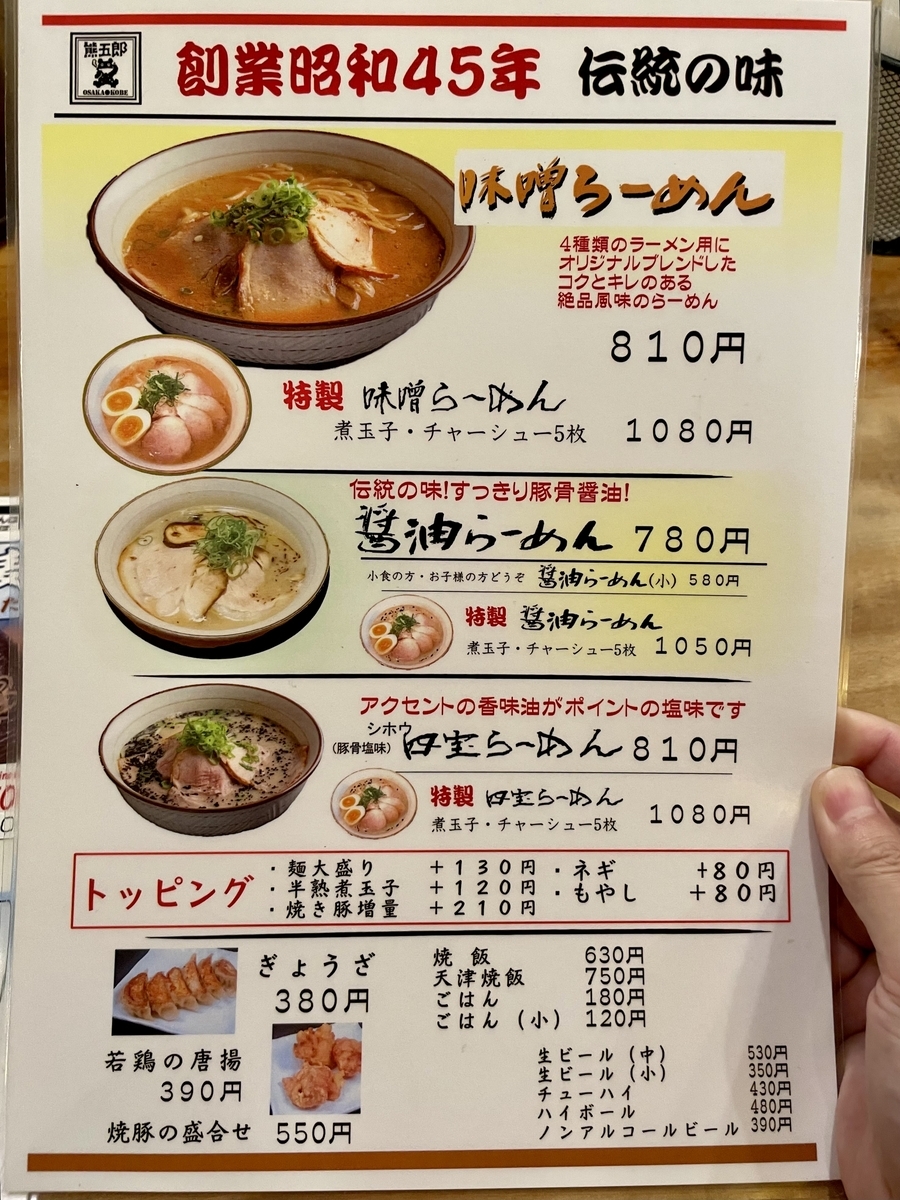 熊五郎
OSAKA●KOBE
創業昭和45年 伝統の味
味噌らーめん
4種類のラーメン用に
オリジナルブレンドした
コクとキレのある
絶品風味のらーめん
810円
特製 味噌らーめん
煮玉子・チャーシュー5枚 1080円
伝統の味!すっきり豚骨醤油!
醤油らーめん 780円
小食の方・お子様の方どうぞ 醤油らーめん(小) 580円
特製 醤油らーめん
煮玉子・チャーシュー5枚 1050円
アクセントの香味油がポイントの塩味です
シホウ
(豚骨塩味) 四宝らーめん 810円
特製 四宝らーめん
煮玉子・チャーシュー5枚 1080円
トッピング
・麺大盛り +130円
・半熟煮玉子 +120円
・焼き豚増量 +210円
・ネギ +80円
・もやし +80円
ぎょうざ
380円
若鶏の唐揚
390円
焼豚の盛合せ 550円
焼飯 630円
天津焼飯 750円
ごはん 180円
ごはん(小) 120円
生ビール(中) 530円
生ビール(小) 350円
チューハイ 430円
ハイボール 480円
ノンアルコールビール 390円